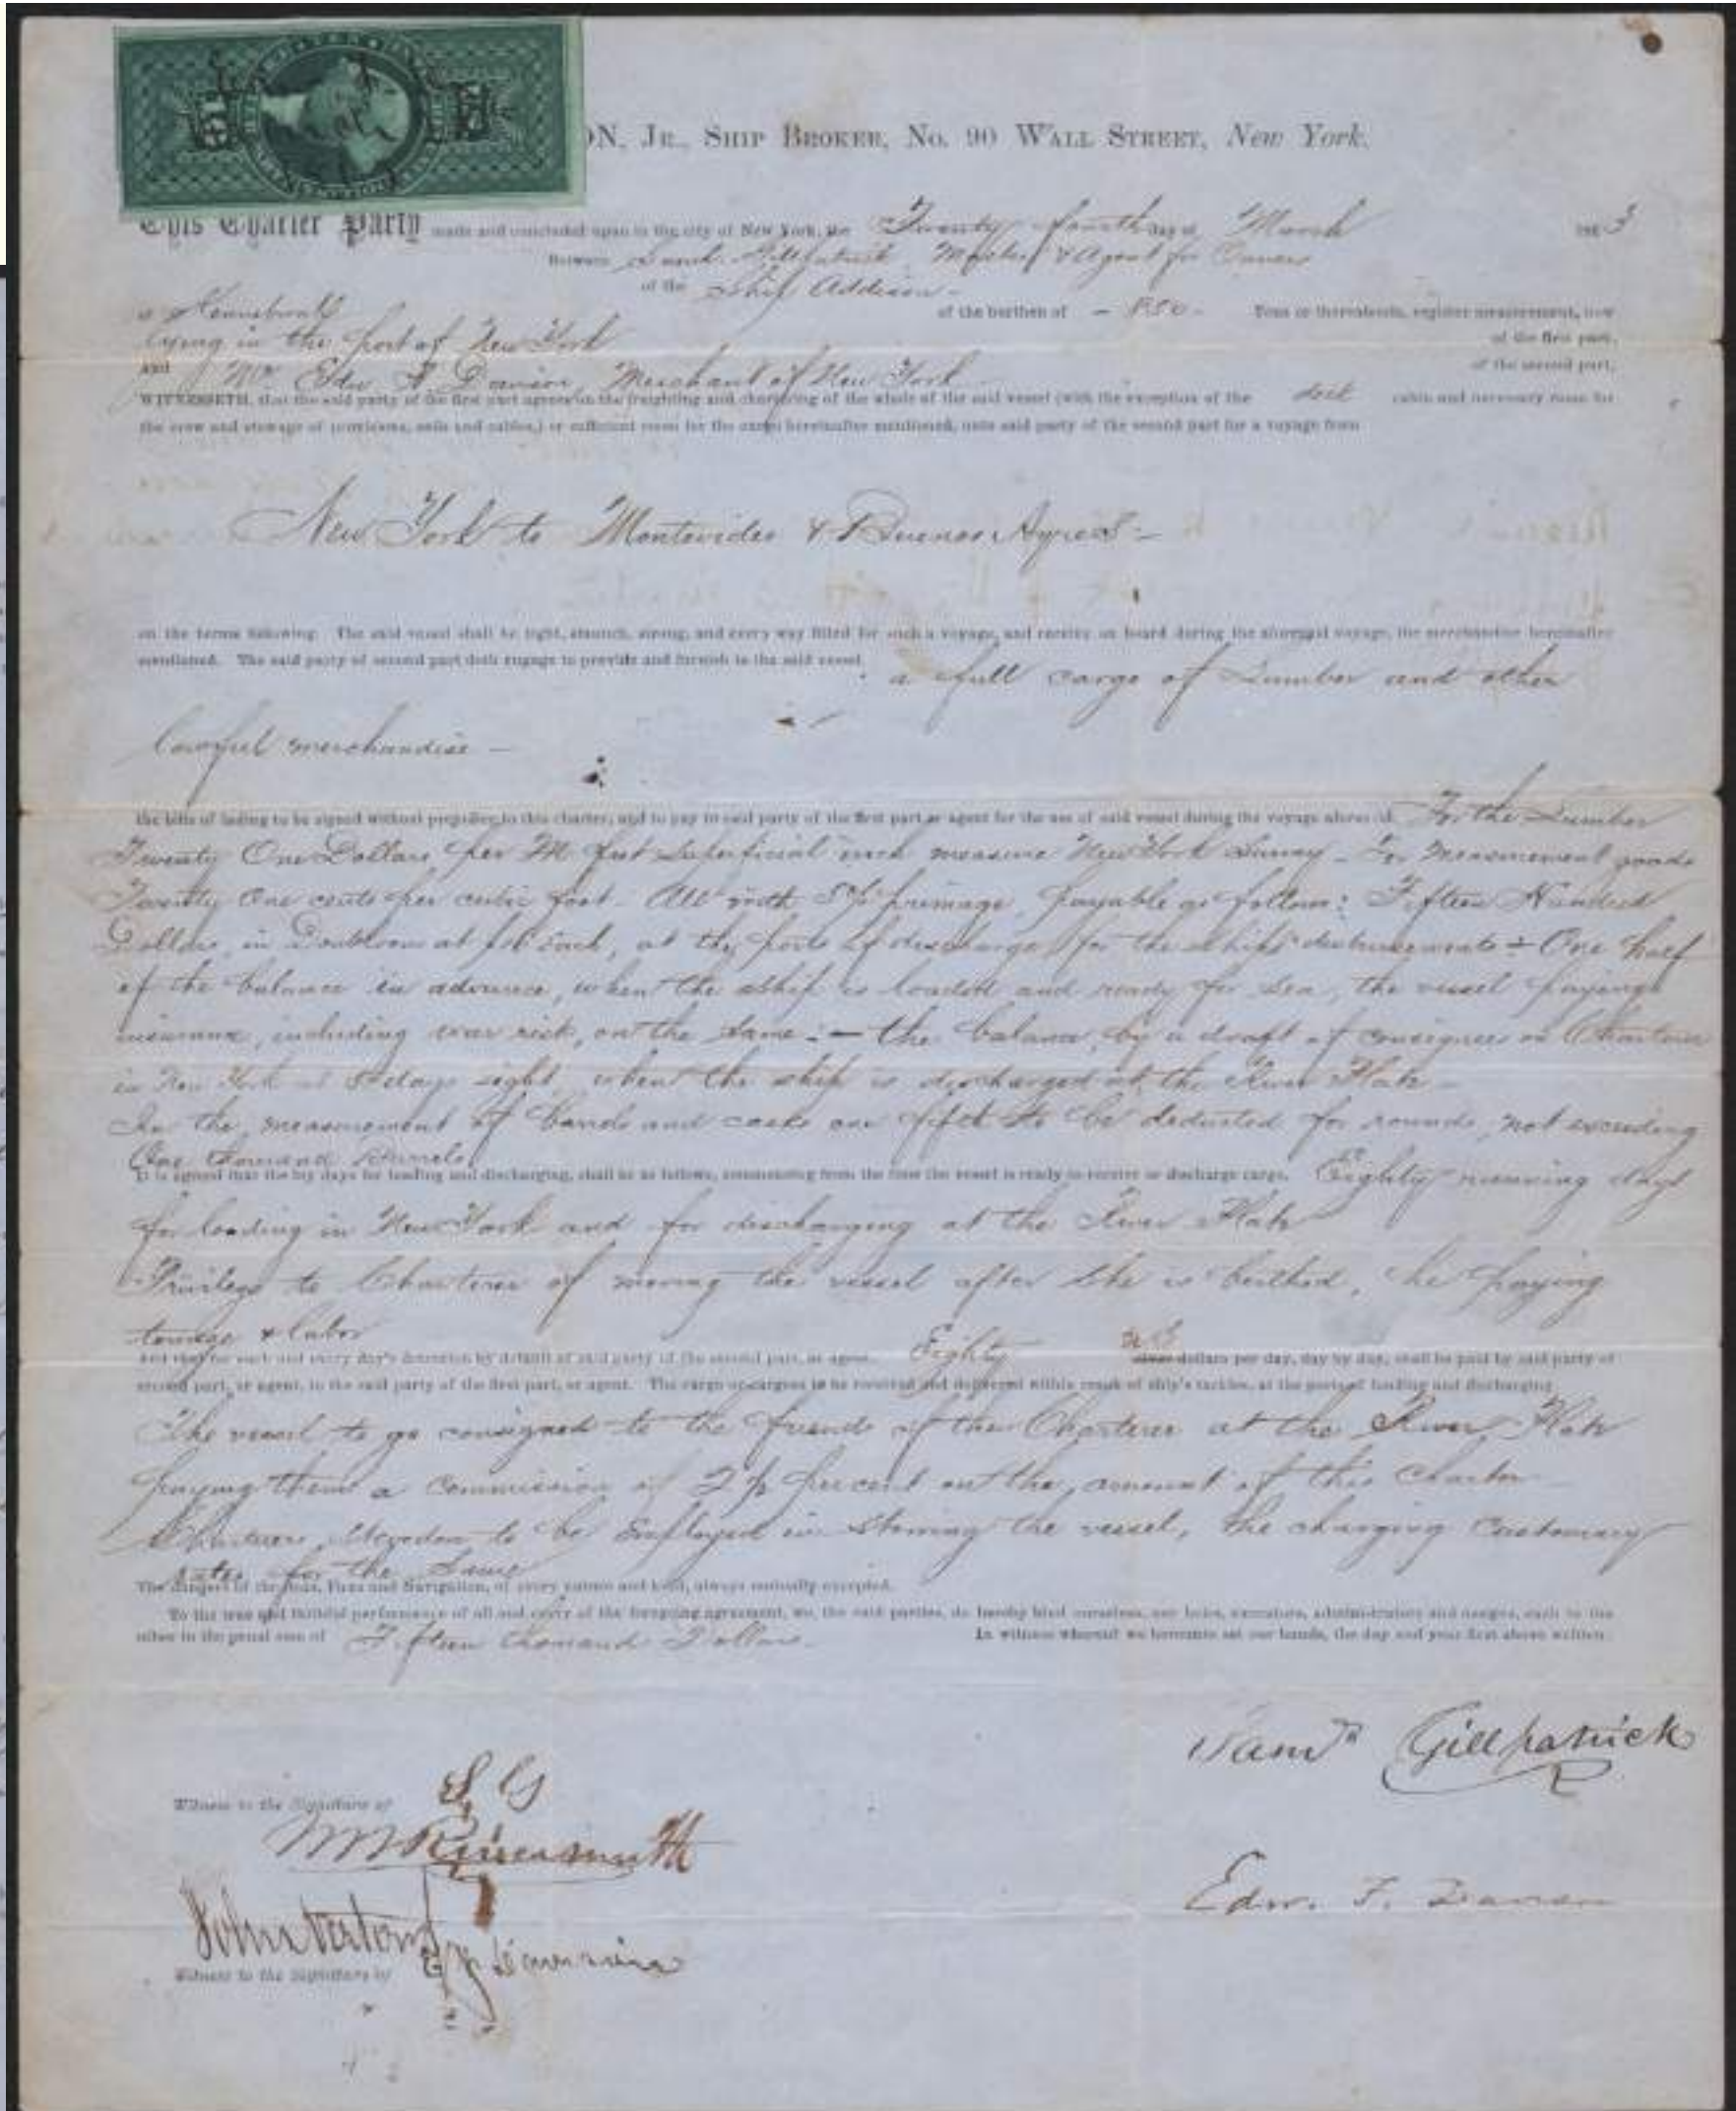 ON, JR., SHIP BROKER, No. 90 WALL STREET, New York.
This Charter Party made and concluded upon in the city of New York, the Twenty fourth day of March 1863
Between Saml. Gillpatrick Master & Agent for Owners
of the Ship Addison -
of Kennebunk of the burthen of - 850 - Tons or thereabouts, register measurement, now
lying in the port of New York of the first part,
and Mr Edw F. Davison, Merchant of New York of the second part,
WITNESSETH, that the said party of the first part agrees on the freighting and chartering of the whole of the said vessel (with the exception of the deck cabin and necessary room for
the crew and stowage of provisions, sails and cables,) or sufficient room for the cargo hereinafter mentioned, unto said party of the second part for a voyage from
New York to Montevideo & Buenos Ayres -
on the terms following: The said vessel shall be tight, staunch, strong, and every way fitted for such a voyage, and receive on board during the aforesaid voyage, the merchandise hereinafter
mentioned. The said party of second part doth engage to provide and furnish to the said vessel, a full cargo of Lumber and other
lawful merchandise -
the bills of lading to be signed without prejudice to this charter, and to pay to said party of the first part or agent for the use of said vessel during the voyage aforesaid, For the Lumber
Twenty One Dollars per M feet superficial inch measure New York Survey - For measurement goods
Twenty One cents per cubic foot - All with 5% primage, payable as follows: Fifteen Hundred
Dollars, in Doubloons at $16 each, at the ports of discharge for the ships disbursements - One half
of the balance in advance, when the ship is loaded and ready for sea, the vessel paying
insurance, including war risk, on the same: - the balance, by a draft of consignees on Charterer
in New York at days sight, when the ship is discharged at the River Plate -
In the measurement of barrels and casks one fifth to be deducted for rounds, not exceeding
One thousand Barrels
It is agreed that the lay days for loading and discharging, shall be as follows, commencing from the time the vessel is ready to receive or discharge cargo. Eighty running days
for loading in New York and for discharging at the River Plate
Privilege to Charterer of moving the vessel after she is berthed, he paying
towage & labor
And that for each and every day's detention by default of said party of the second part, or agent, Eighty dollars per day, day by day, shall be paid by said party of
second part, or agent, to the said party of the first part, or agent. The cargo or cargoes to be received and delivered within reach of ship's tackles, at the ports of loading and discharging
The vessel to go consigned to the friends of the Charterer at the River Plate
paying them a commission of 2½ per cent on the amount of this Charter -
Charterers Stevedore to be Employed in Stowing the vessel, he charging Customary
rates for the Same
The dangers of the Seas, Fires and Navigation, of every nature and kind, always mutually excepted.
To the true and faithful performance of all and every of the foregoing agreement, we, the said parties, do hereby bind ourselves, our heirs, executors, administrators and assigns, each to the
other in the penal sum of Fifteen thousand Dollars. In witness whereof we hereunto set our hands, the day and year first above written.
Saml Gillpatrick
Witness to the Signature of S. G
Edw. F. Davison
John
Witness to the Signature of E F Davison